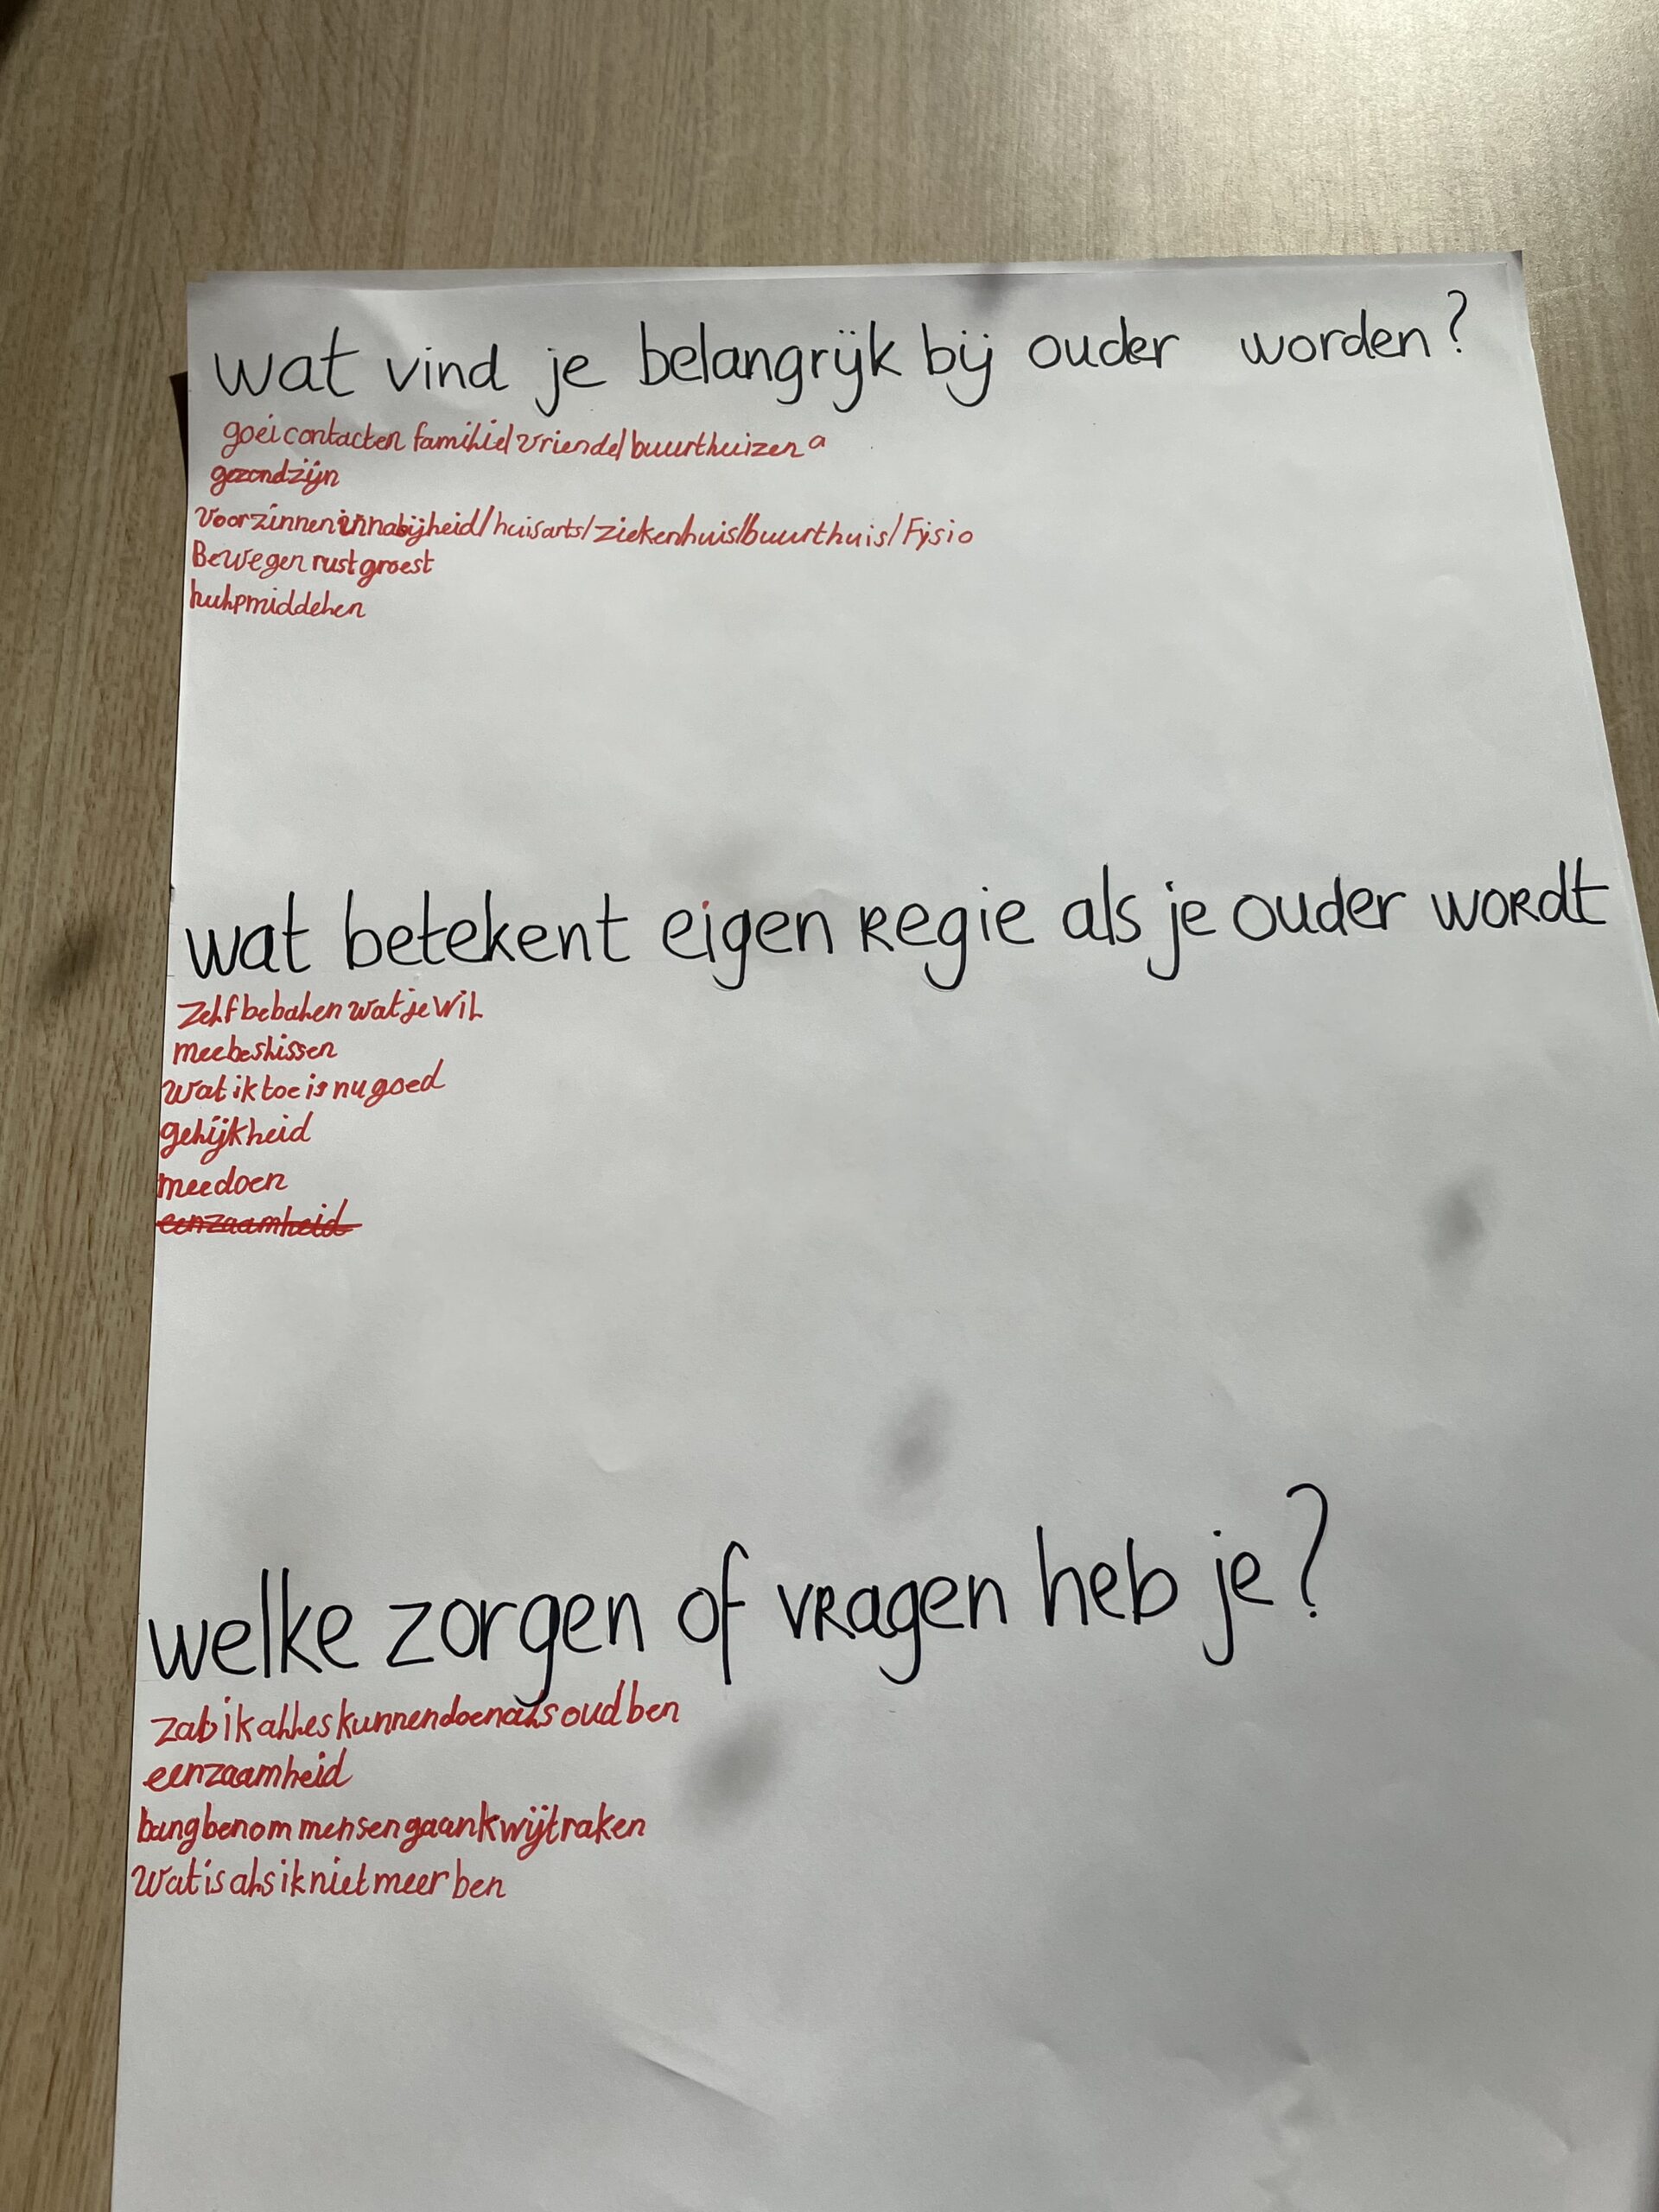 wat vind je belangrijk bij ouder worden?
goei contacten familiel vriendel buurthuizen a
gezond zijn
Voorzinnen in nabijheid/huisarts/ziekenhuis/buurthuis/Fysio
Bewegen rust groest
huhpmiddehen
wat betekent eigen Regie als je ouder wordt
Zehf bebahen wat je wiL
meebeshissen
wat ik toe is nu goed
gehijkheid
meedoen
eenzaamheid
welke zorgen of vragen heb je?
zab ik ahhes kunnen doen ahs oud ben
eenzaamheid
bang ben om mensen gaan kwijtraken
Wat is ahs ik niet meer ben